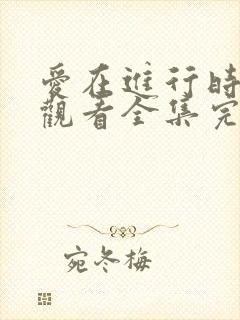 愛在進行時
觀看全集完
宛冬梅